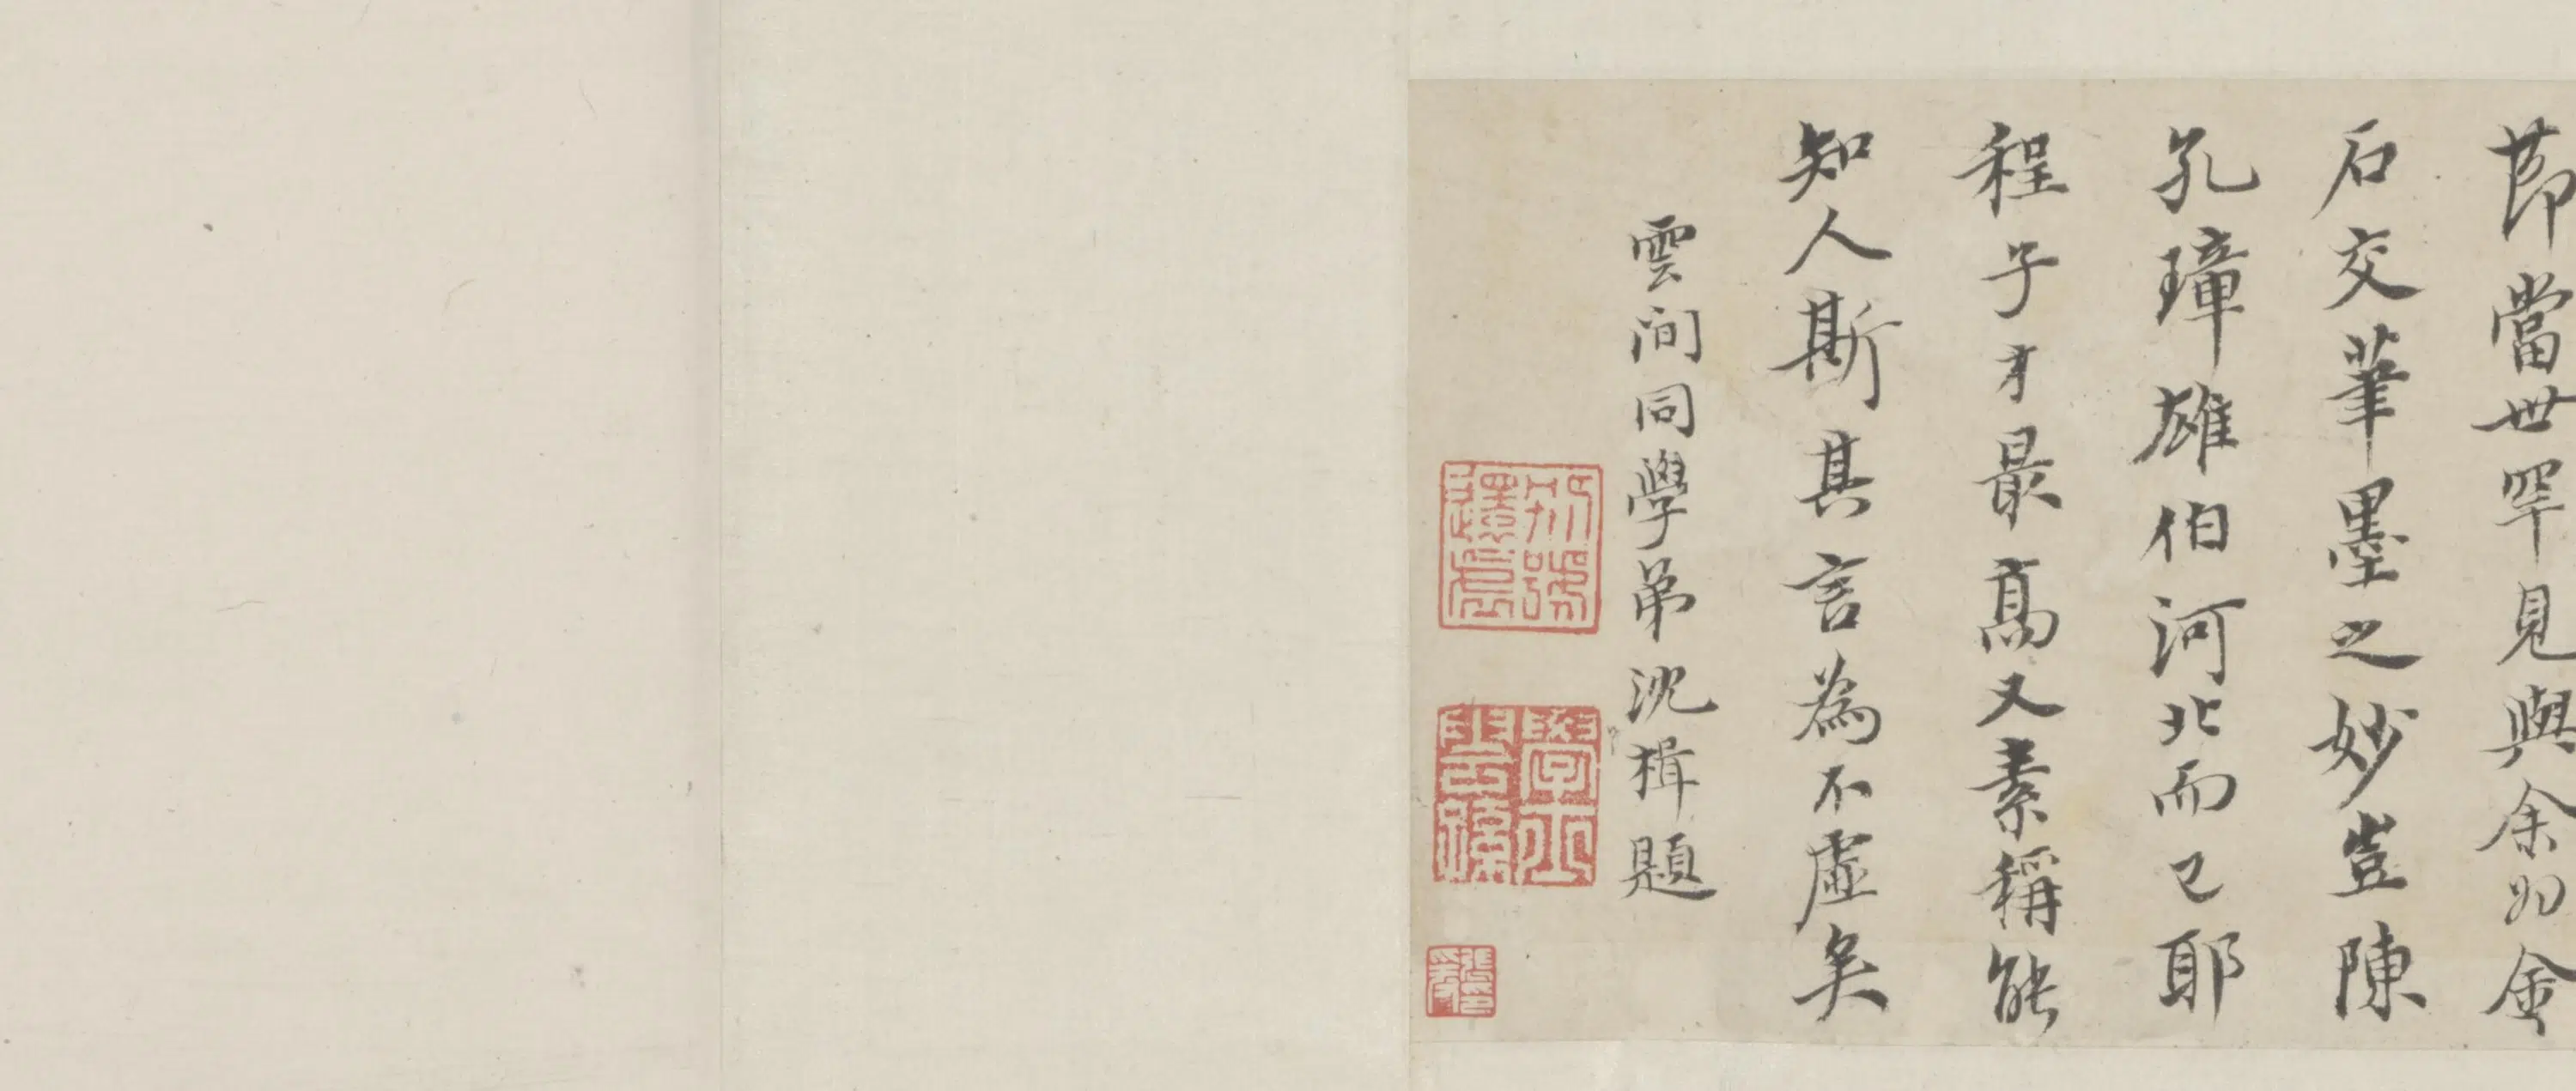 節當世罕見與余如金
石交筆墨之妙豈陳
孔璋雄伯河北而已耶
程子才最高又素稱能
知人斯其言為不虛矣
雲間同學弟沈楫題